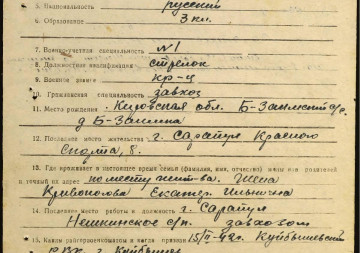 5. Национальность русский
6. Образование 3 кл.
7. Военно-учетная специальность №1
8. Должностная квалификация стрелок
9. Военное звание кр-ц
10. Гражданская специальность завхоз
11. Место рождения Кировская обл. Б-Заимский с/с.
д Б-Заимина
12. Постоянное место жительства г. Сарапул Красного
Спорта, 8.
13. Где проживают в настоящее время семья (фамилия, имя, отчество) жены или родителей
и точный их адрес по месту жит-ва. Жена
Кривоногова Екатер. Ильинич
14. Последнее место работы и должность г. Сарапул
завхозом
15. Каким райгорвоенкоматом и когда призван 15/II-42г. Куйбышевский
РВК г. Куйбышев